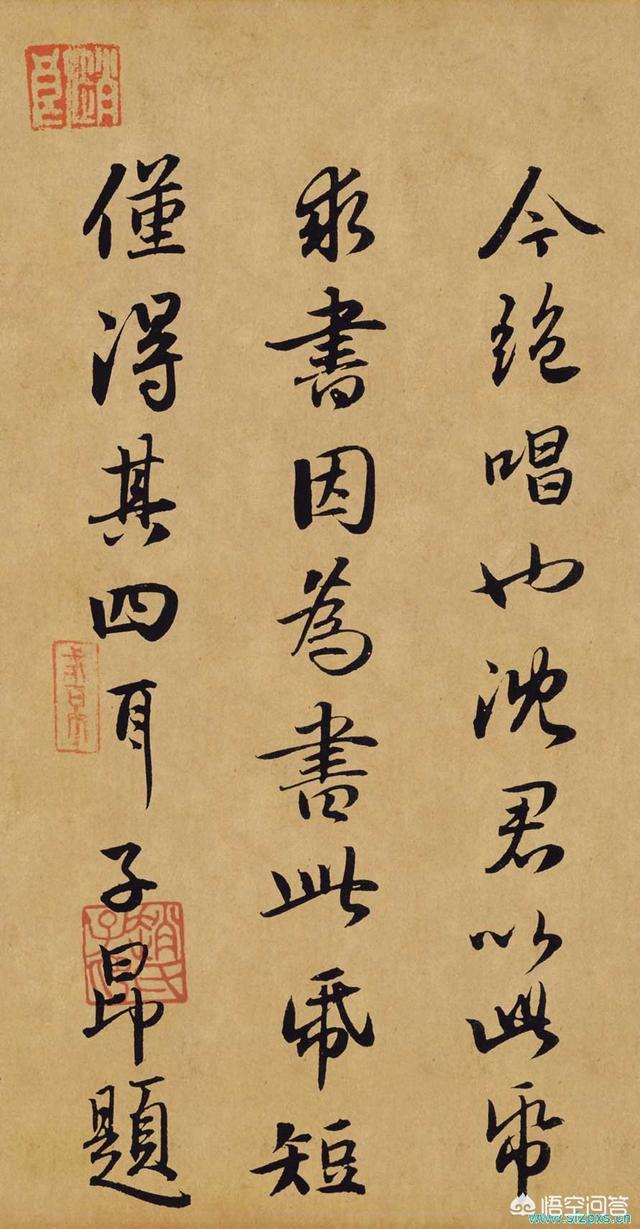 今絕唱也沈君以此帋
求書因為書此帋短
僅得其四耳子昂題
趙氏子昂
悟空问答